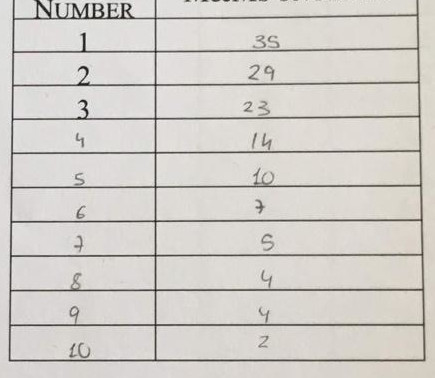 NUMBER
1 35
2 29
3 23
4 14
5 10
6 7
7 5
8 4
9 4
10 2